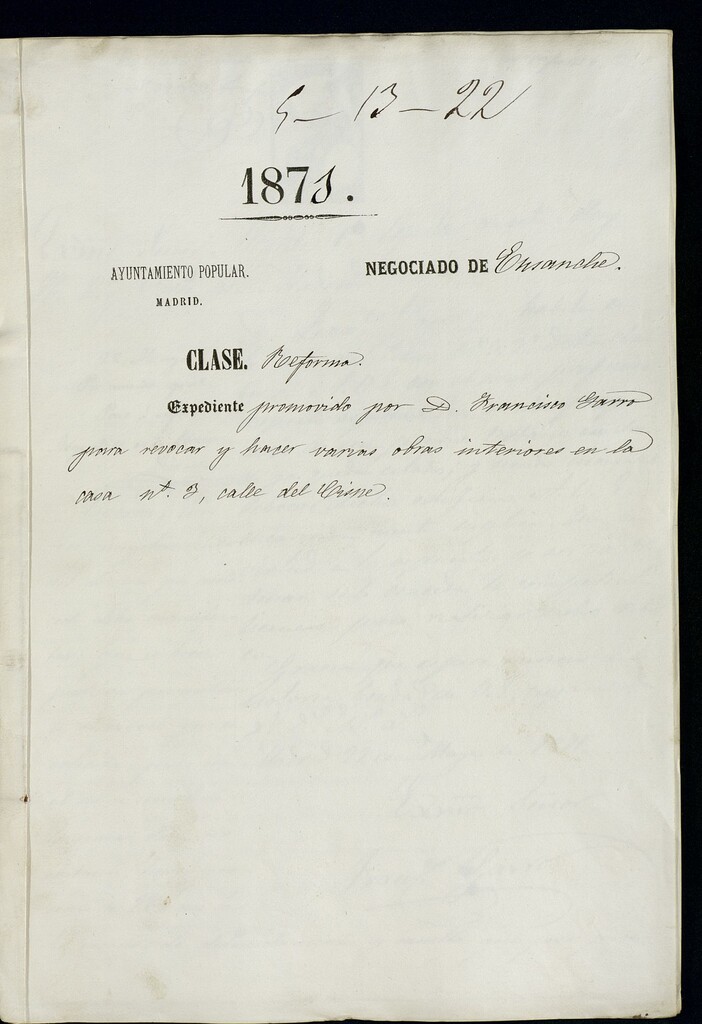 5-13-22
1871.
AYUNTAMIENTO POPULAR.
MADRID.
NEGOCIADO DE Ensanche.
CLASE. Reforma.
Expediente promovido por D. Francisco Garro
para revocar y hacer varias obras interiores en la
casa nº. 3, calle del Cisne.